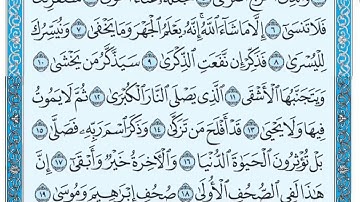 فَلَا تَنسَىٰٓ ٦ إِلَّا مَا شَآءَ ٱللَّهُ إِنَّهُۥ يَعْلَمُ ٱلْجَهْرَ وَمَا يَخْفَىٰ ٧ وَنُيَسِّرُكَ
لِلْيُسْرَىٰ ٨ فَذَكِّرْ إِن نَّفَعَتِ ٱلذِّكْرَىٰ ٩ سَيَذَّكَّرُ مَن يَخْشَىٰ ١٠
وَيَتَجَنَّبُهَا ٱلْأَشْقَى ١١ ٱلَّذِى يَصْلَى ٱلنَّارَ ٱلْكُبْرَىٰ ١٢ ثُمَّ لَا يَمُوتُ
فِيهَا وَلَا يَحْيَىٰ ١٣ قَدْ أَفْلَحَ مَن تَزَكَّىٰ ١٤ وَذَكَرَ ٱسْمَ رَبِّهِۦ فَصَلَّىٰ ١٥
بَلْ تُؤْثِرُونَ ٱلْحَيَوٰةَ ٱلدُّنْيَا ١٦ وَٱلْءَاخِرَةُ خَيْرٌ وَأَبْقَىٰٓ ١٧ إِنَّ
هَٰذَا لَفِى ٱلصُّحُفِ ٱلْأُولَىٰ ١٨ صُحُفِ إِبْرَٰهِيمَ وَمُوسَىٰ ١٩